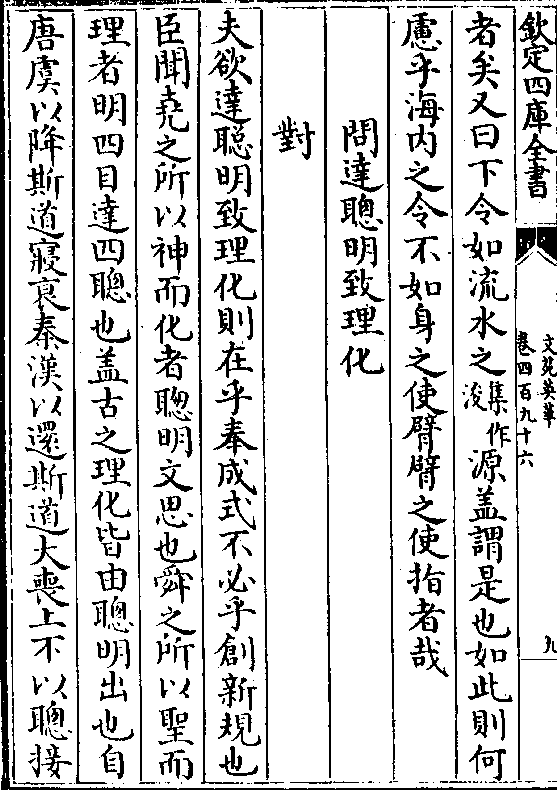 欽定四庫全書
文苑英華
卷四百九十六
九
者矣又曰下令如流水之集作浚源盖謂是也如此則何
慮乎海内之令不如身之使臂臂之使指者哉
問達聰明致理化
對
夫欲達聰明致理化則在乎奉成式不必乎創新規也
臣聞堯之所以神而化者聰明文思也舜之所以聖而
理者明四目達四聰也盖古之理化皆由聰明出也自
唐虞以降斯道寖衰秦漢以還斯道大喪上不以聰接